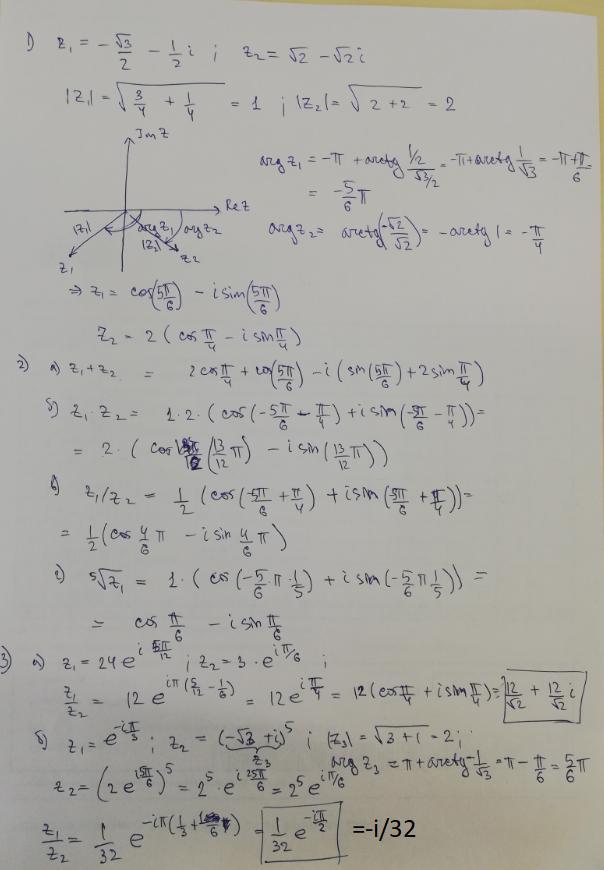 1) z₁ = -√3/2 - 1/2 i ; z₂ = √2 - √2 i
|z₁| = √(3/4 + 1/4) = 1 ; |z₂| = √(2+2) = 2
Im z
arg z₁ = -π + arctg (1/2)/(√3/2) = -π + arctg 1/√3 = -π + π/6 =
= -5/6 π
Re z
|z₁| arg z₁ arg z₂
|z₂|
z₁ z₂
arg z₂ = arctg(-√2/√2) = -arctg 1 = -π/4
⇒ z₁ = cos(5π/6) - i sin(5π/6)
z₂ = 2 (cos π/4 - i sin π/4)
2) а) z₁ + z₂ = 2 cos π/4 + cos(5π/6) - i (sin(5π/6) + 2 sin π/4)
б) z₁ · z₂ = 1·2·(cos(-5π/6 - π/4) + i sin(-5π/6 - π/4)) =
= 2·(cos(13/12 π) - i sin(13/12 π))
в) z₁/z₂ = 1/2 (cos(-5π/6 + π/4) + i sin(-5π/6 + π/4)) =
= 1/2 (cos 4/6 π - i sin 4/6 π)
г) ⁵√z₁ = 1·(cos(-5/6 π · 1/5) + i sin(-5/6 π 1/5)) =
= cos π/6 - i sin π/6
3) а) z₁ = 24 e^(i 5π/12) ; z₂ = 3 · e^(iπ/6) ;
z₁/z₂ = 12 e^(iπ(5/12 - 1/6)) = 12 e^(iπ/4) = 12 (cos π/4 + i sin π/4) = 12/√2 + 12/√2 i
б) z₁ = e^(-iπ/3) ; z₂ = (-√3 + i)⁵ ; |z₃| = √(3+1) = 2 ;
z₃
arg z₃ = π + arctg -1/√3 = π - π/6 = 5/6 π
z₂ = (2 e^(i5π/6))⁵ = 2⁵ · e^(i 25π/6) = 2⁵ e^(iπ/6)
z₁/z₂ = 1/32 e^(-iπ(1/3 + 1/6)) = 1/32 e^(-iπ/2) =-i/32